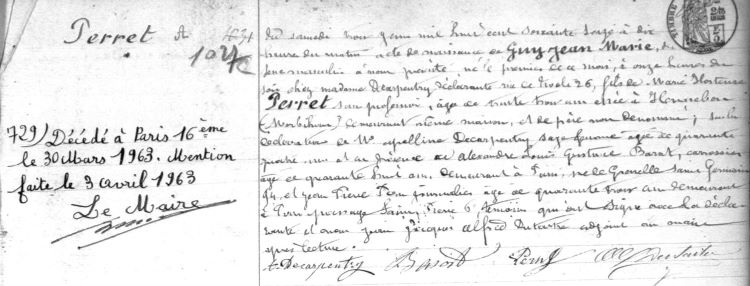 Perret
729) Décédé à Paris 16ème
le 30 Mars 1963. Mention
faite le 3 avril 1963
Le Maire
du samedi trois juin mil huit cent soixante seize à dix
heures du matin, acte de naissance de Guy Jean Marie, du
sexe masculin à nous présenté né le premier de ce mois, à onze heures du
soir chez madame Decarpentry déclarante rue de Rivoli 26, fils de Marie Hortense
Perret sans profession, âgée de trente trois ans née à Hennebon
(Morbihan) demeurant même maison, et de père non dénommé; sur la
déclaration de Appoline Decarpentry sage femme âgée de quarante
ans et en présence de Alexandre Louis Gustave carrossier
âgé de quarante huit ans, demeurant à Paris, rue de Grenelle Saint Germain
94, et Jean Pierre journalier âgé de quarante trois ans demeurant
à Paris passage Saint Pierre 6 témoins qui ont signé avec la décla-
rante et nous Jean Jacques Alfred Dutartre adjoint au maire
après lecture.
Decarpentry